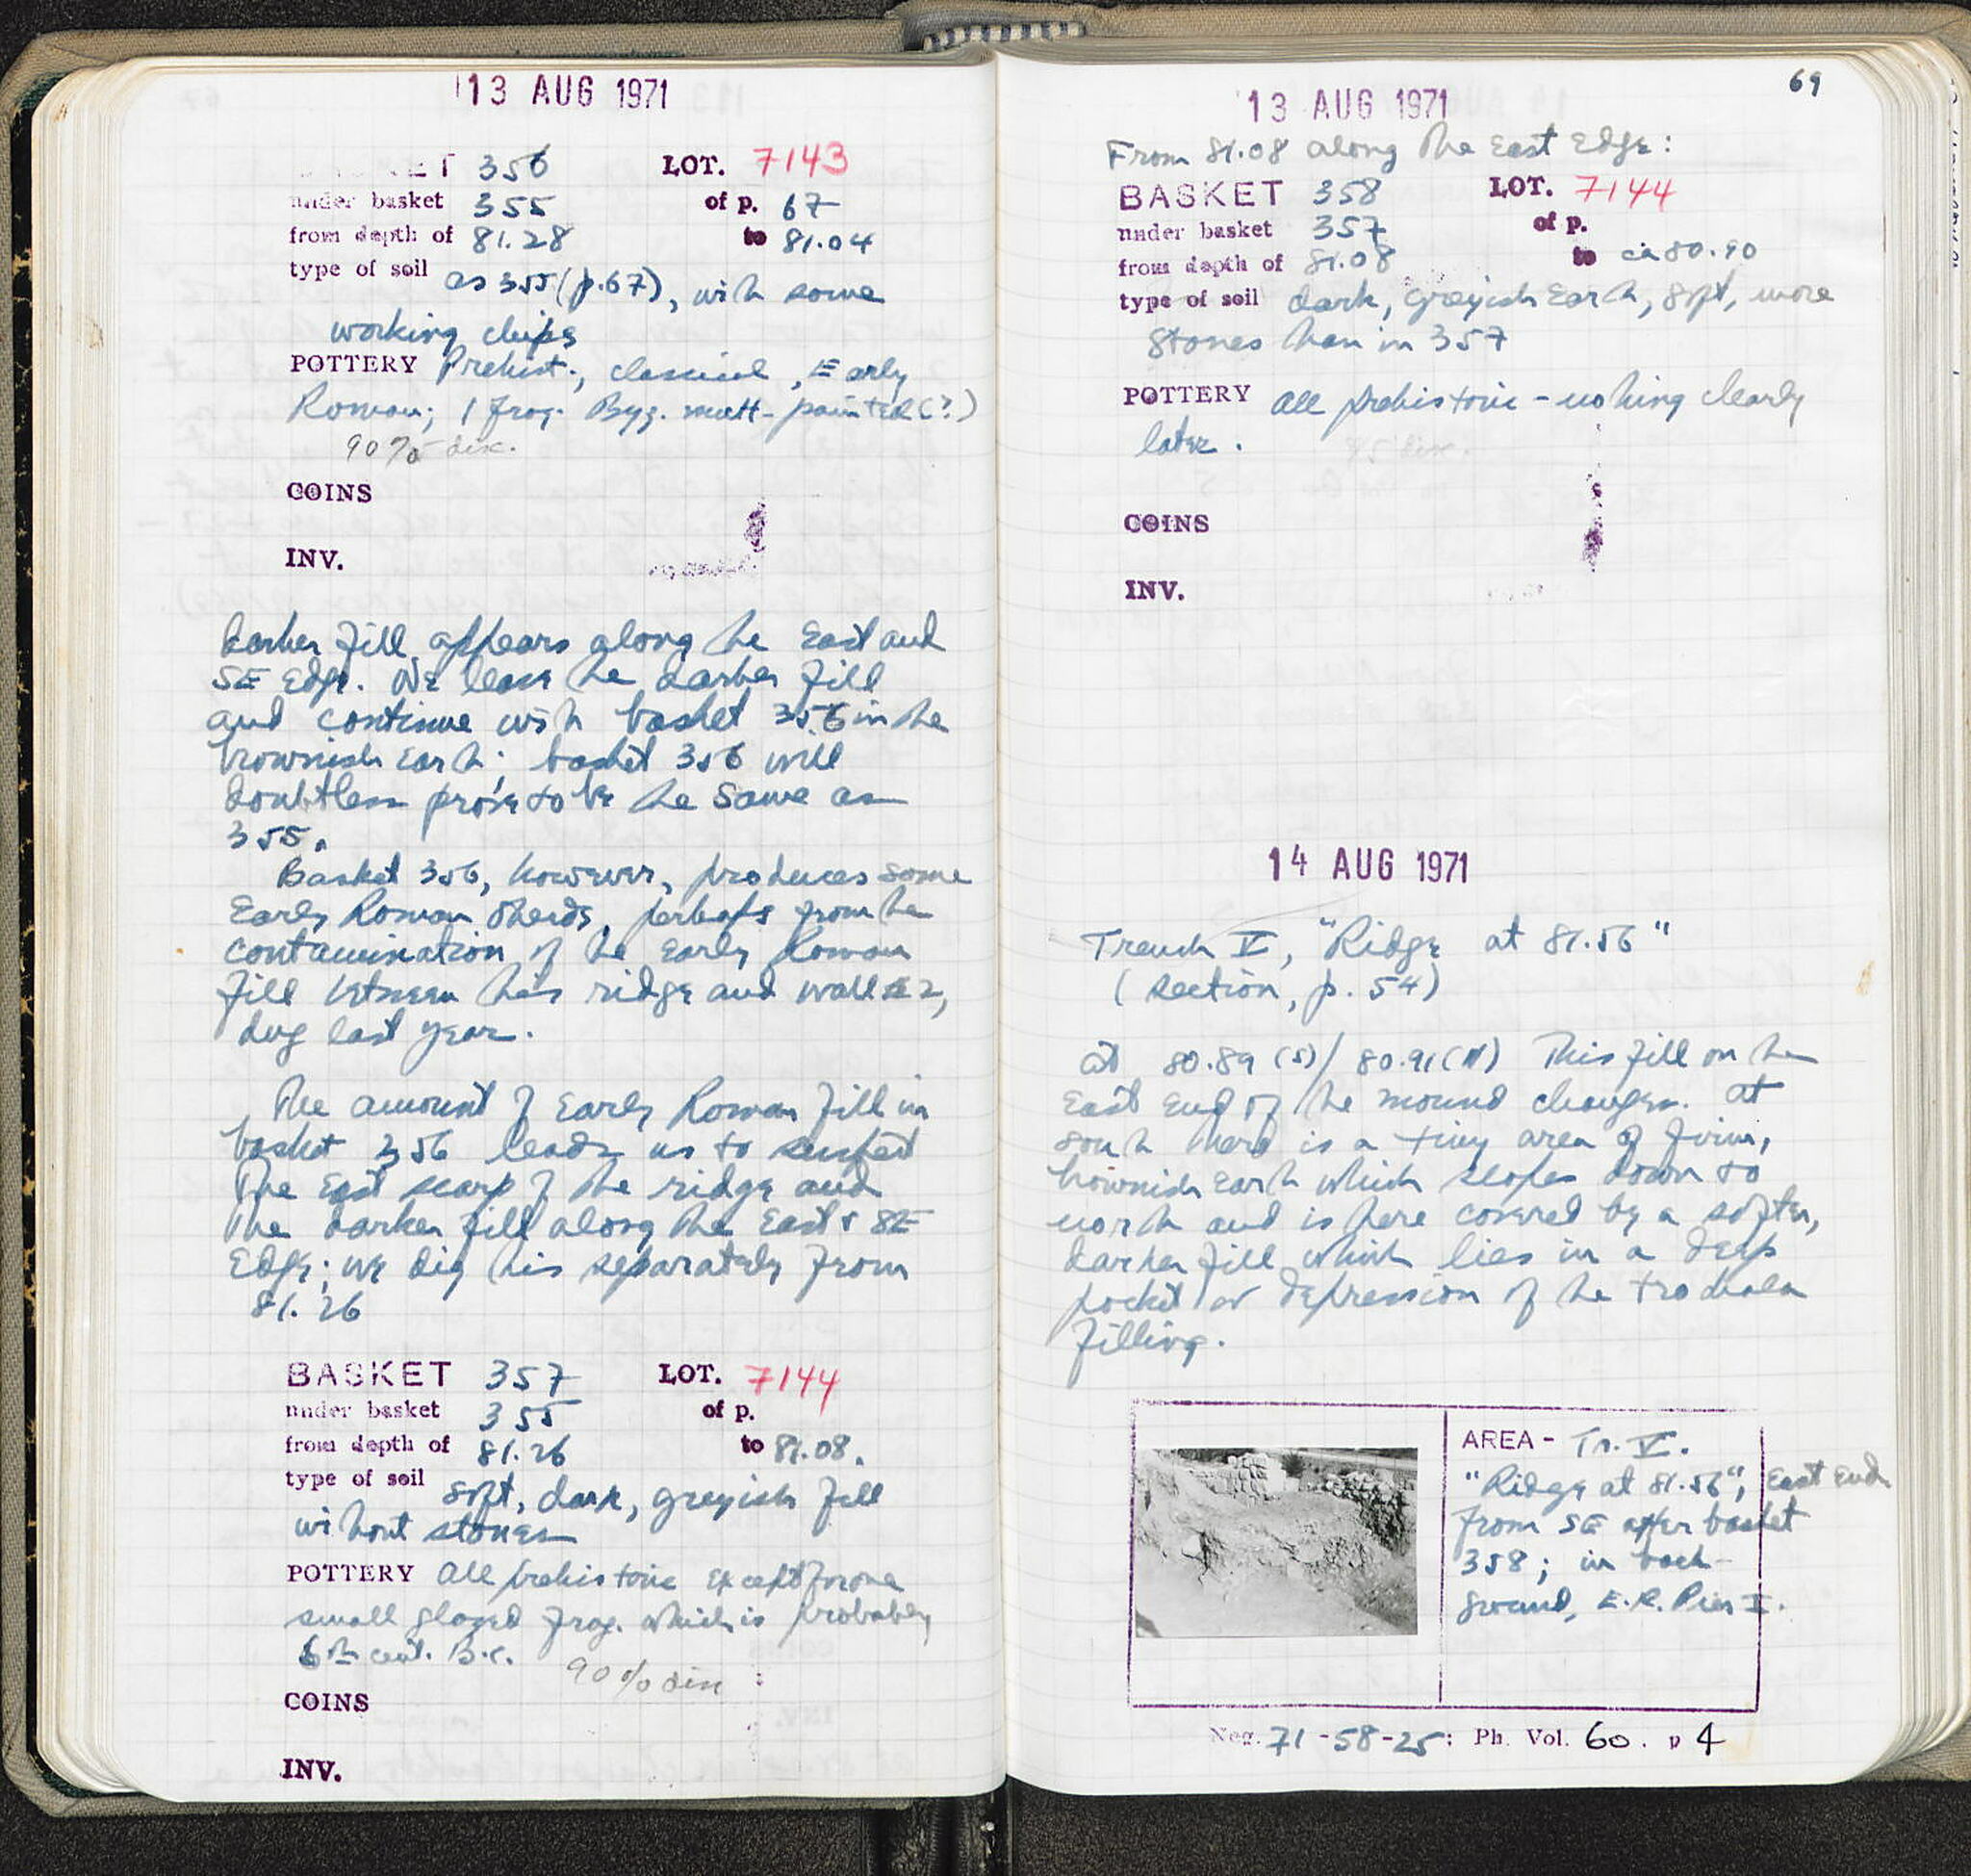 13 AUG 1971
BASKET 356 LOT. 7143
under basket 355 of p. 67
from depth of 81.28 to 81.04
type of soil as 355 (p.67), with some
working chips
POTTERY Prehist., classical, Early
Roman; 1 frag. Byz. matt-painted(?)
90% disc.
COINS
INV.
Darker fill appears along the East and
SE Edge. We leave the darker fill
and continue with basket 356 in the
brownish earth; basket 356 will
doubtless prove to be the same as
355.
Basket 356, however, produces some
Early Roman sherds, perhaps from the
contamination of the early Roman
fill between this ridge and wall 2,
dug last year.
The amount of Early Roman fill in
basket 356 leads us to suspect
the East scarp of the ridge and
the darker fill along the East & SE
Edge; we dig this separately from
81.26
BASKET 357 LOT. 7144
under basket 355 of p.
from depth of 81.26 to 81.08.
type of soil soft, dark, greyish fill
without stones
POTTERY All prehistoric except for one
small glazed frag. which is probably
6th cent. B.C.
90% disc
COINS
INV.
69
13 AUG 1971
From 81.08 along the East Edge:
BASKET 358 LOT. 7144
under basket 357 of p.
from depth of 81.08 to ca 80.90
type of soil dark, greyish Earth, soft, more
stones than in 357
POTTERY All prehistoric - nothing clearly
later.
95 disc.
COINS
INV.
14 AUG 1971
Trench V, "Ridge at 81.56"
(section, p. 54)
At 80.89 (S)/ 80.91(N) This fill on the
East End of the mound changes. At
south there is a tiny area of firm,
brownish earth which slopes down to
north and is here covered by a softer,
darker fill which lies in a deep
pocket or depression of the trochala
filling.
AREA - Tr. V.
"Ridge at 81.56", East End
from SE after basket
358; in back-
ground, E.R. Pier I.
Neg. 71-58-25; Ph. Vol. 60. p 4